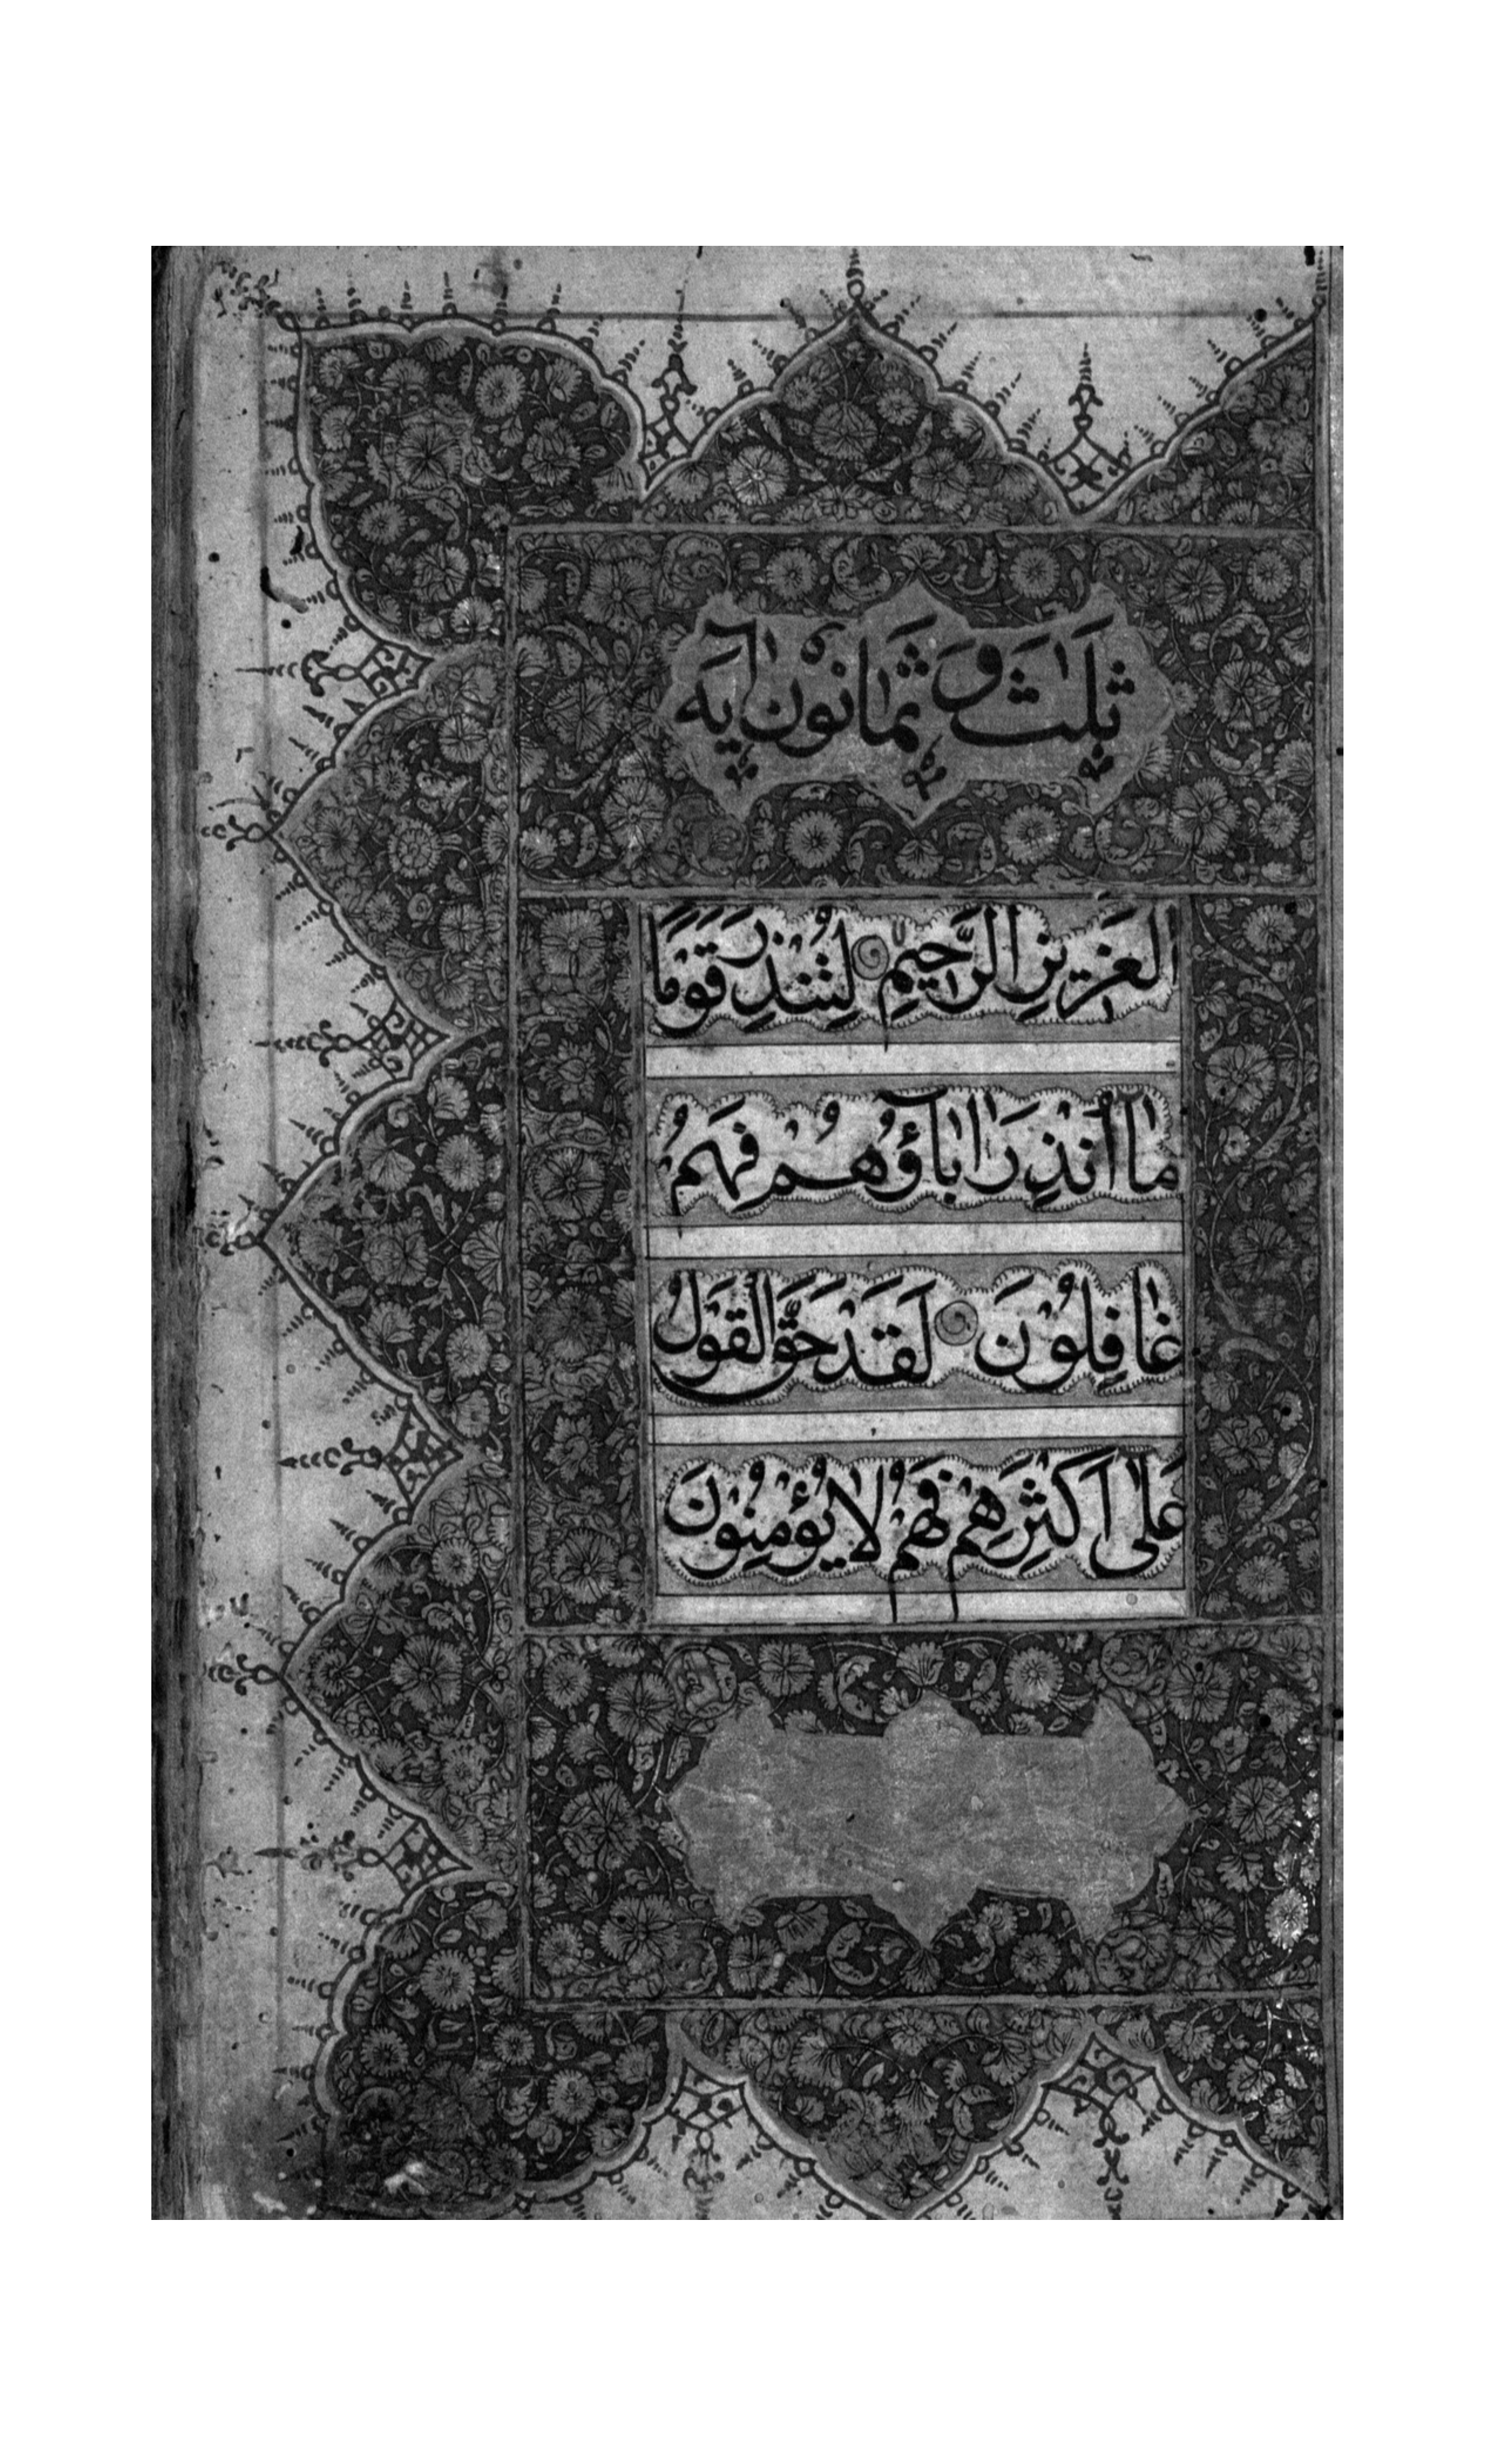 ثَلٰثٌ وَ ثَمَانُوْنَ اٰيَه
الْعَزِيزِ الرَّحِيْمِ لِتُنْذِرَ قَوْمًا
مَا اُنْذِرَ اٰبَآؤُهُمْ فَهُمْ
غَافِلُوْنَ لَقَدْ حَقَّ الْقَوْلُ
عَلٰى اَكْثَرِهِمْ فَهُمْ لَا يُؤْمِنُوْنَ